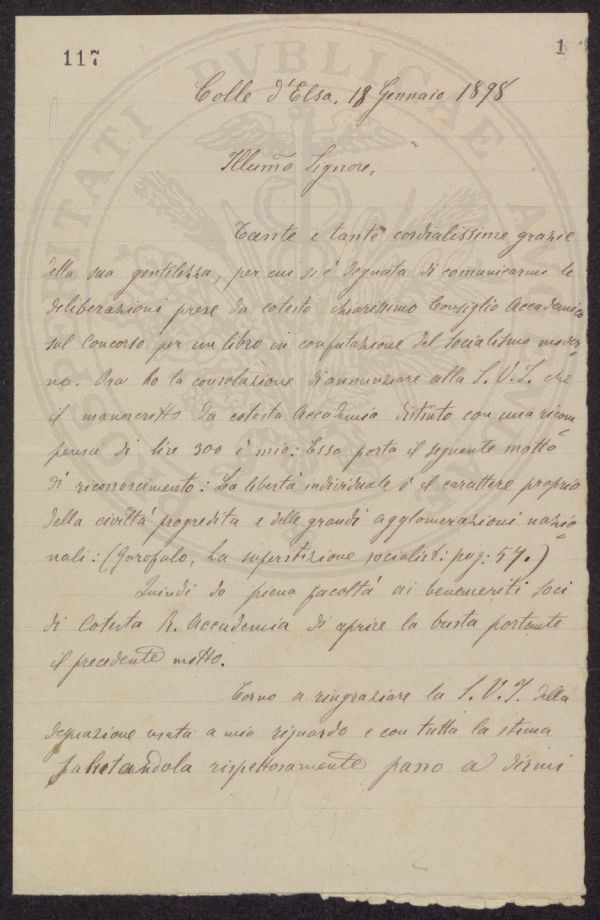 117
1
Colle d'Elsa, 18 Gennaio 1898
Illumo Signore,
Tante e tante cordialissime grazie
della sua gentilezza, per cui si è degnata di comunicarmi le
deliberazioni prese da cotesto chiarissimo Consiglio Accademico
sul Concorso per un libro in confutazione del socialismo moder-
no. Ora ho la consolazione di annunziare alla S. V. I. che
il manoscritto da cotesta Accademia distinto con una ricom-
pensa di lire 300 è mio: Esso porta il seguente motto
di riconoscimento: La libertà individuale è il carattere proprio
della civiltà progredita e delle grandi agglomerazioni nazio-
nali: (Garofalo, La superstizione socialist: pag: 57.)
Quindi do piena facoltà ai benemeriti soci
di Cotesta R. Accademia di aprire la busta portante
il precedente motto.
Torno a ringraziare la S. V. I. della
degnazione usata a mio riguardo e con tutta la stima
salutandola rispettosamente passo a dirmi